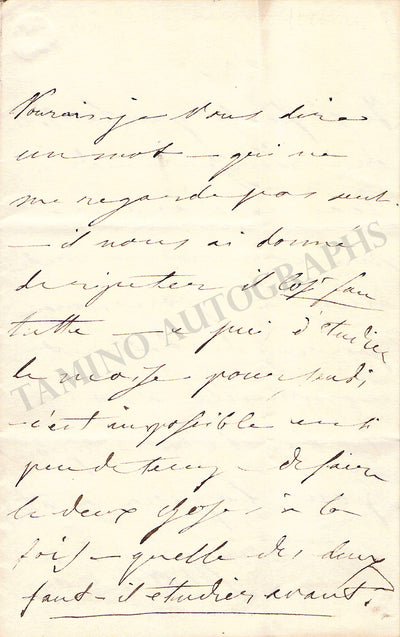 Pourrais je vous dire
un mot – qui ne
me regarde pas seul.
– il nous ai donné
de ripeter il Cosi fan
tutte – e puis d'étudier
le moise pour lundi,
– c'est impossible en si
peu de temps – de faire
le deux choses à la
fois – quelle des deux
faut–il étudier avant?
TAMINO AUTOGRAPHS